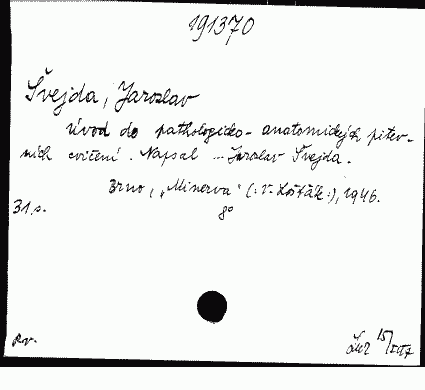 191370
Švejda, Jaroslav
Úvod do pathologicko-anatomických pitev-
ních cvičení. Napsal ... Jaroslav Švejda.
Brno, "Minerva" (:V. Košťák:), 1946.
31 s. 8°
15/